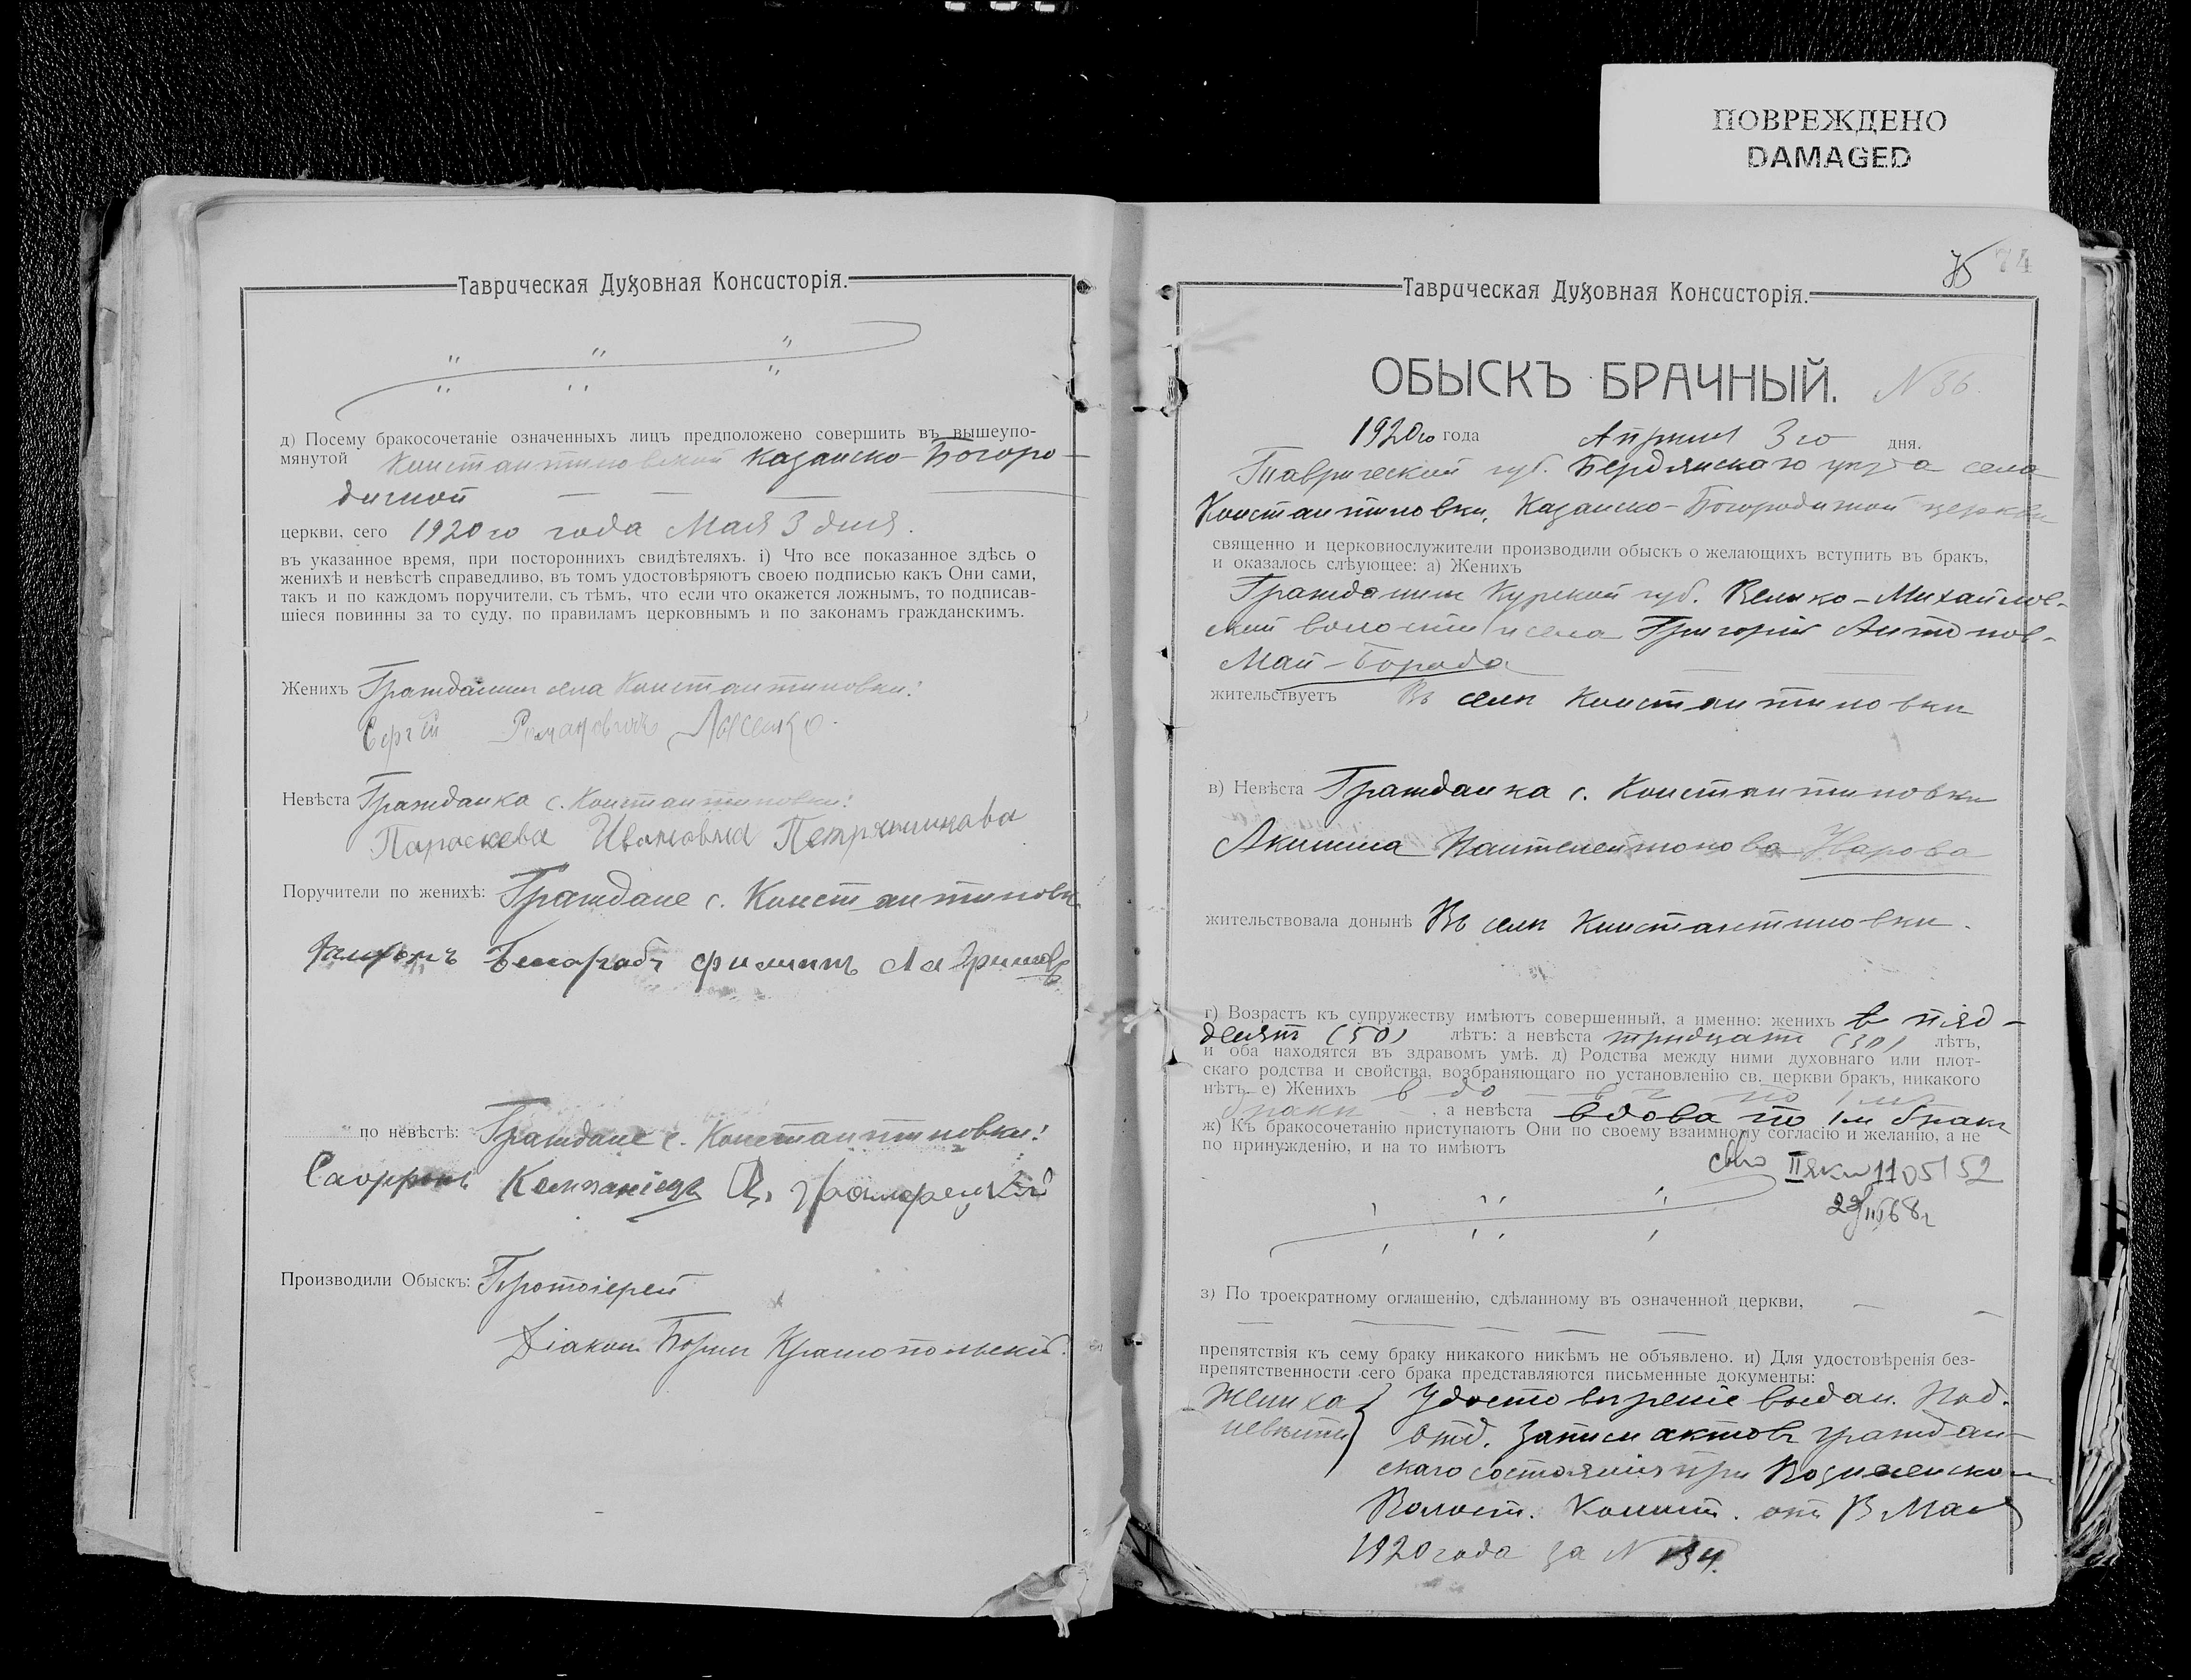 ПОВРЕЖДЕНО
DAMAGED
Таврическая Духовная Консисторія.
д) Посему бракосочетаніе означенныхъ лицъ предположено совершить въ вышеупо-
мянутой Константиновской Казанско-Богоро-
дичной
церкви, сего 1920го года Мая 3 дня.
въ указанное время, при постороннихъ свидѣтеляхъ. і) Что все показанное здѣсь о
женихѣ и невѣстѣ справедливо, въ томъ удостовѣряютъ своею подписью какъ Они сами,
такъ и по каждомъ поручители, съ тѣмъ, что если что окажется ложнымъ, то подписав-
шіеся повинны за то суду, по правиламъ церковнымъ и по законамъ гражданскимъ.
Женихъ Гражданин села Константиновки:
Сергѣй Романовичъ Лысенко.
Невѣста Гражданка с. Константиновки:
Параскева Ивановна
Поручители по женихѣ: Граждане с. Константиновки
Филипъ
по невѣстѣ: Граждане с. Константиновки:
Производили Обыскъ: Протоіерей
Діакон Борис Краснопольский.
75 74
Таврическая Духовная Консисторія.
ОБЫСКЪ БРАЧНЫЙ. N 36.
1920го года Апрѣля 3го дня.
Таврической губ. Бердянскаго уѣзда села
Константиновки, Казанско-Богородичной церкви
священно и церковнослужители производили обыскъ о желающихъ вступить въ бракъ,
и оказалось слѣующее: а) Женихъ
Гражданин Курской губ. Велико-Михайлов-
ской волости и села Григорій Антонов-
Май-Борода
жительствуетъ Въ селѣ Константиновки
в) Невѣста Гражданка с. Константиновки
Акилина Пантелеймонова
жительствовала донынѣ Въ селѣ Константиновки.
г) Возрастъ къ супружеству имѣютъ совершенный, а именно: женихъ в пяд-
десят (50) лѣтъ: а невѣста тридцати (30) лѣтъ,
и оба находятся въ здравомъ умѣ. д) Родства между ними духовнаго или плот-
скаго родства и свойства, возбраняющаго по установленію св. церкви бракъ, никакого
нѣтъ. е) Женихъ вдовец по 1м
браки, а невѣста вдова по 1м бракѣ
ж) Къ бракосочетанію приступаютъ Они по своему взаимному согласію и желанію, а не
по принужденію, и на то имѣютъ
з) По троекратному оглашенію, сдѣланному въ означенной церкви,
препятствія къ сему браку никакого никѣмъ не объявлено. и) Для удостовѣренія без-
препятственности сего брака представляются письменные документы:
Жениха Удостовѣреніе выдан. Под.
невѣсты отд. записи актовъ граждан-
скаго состоянія при
Волост. Комит. от 3 Мая
1920 года за N 134.